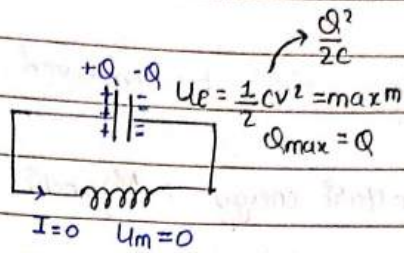 Q²
2C
+Q -Q
Ue = 1/2 CV² = maxᵐ
Qmax = Q
I=0 Um=0